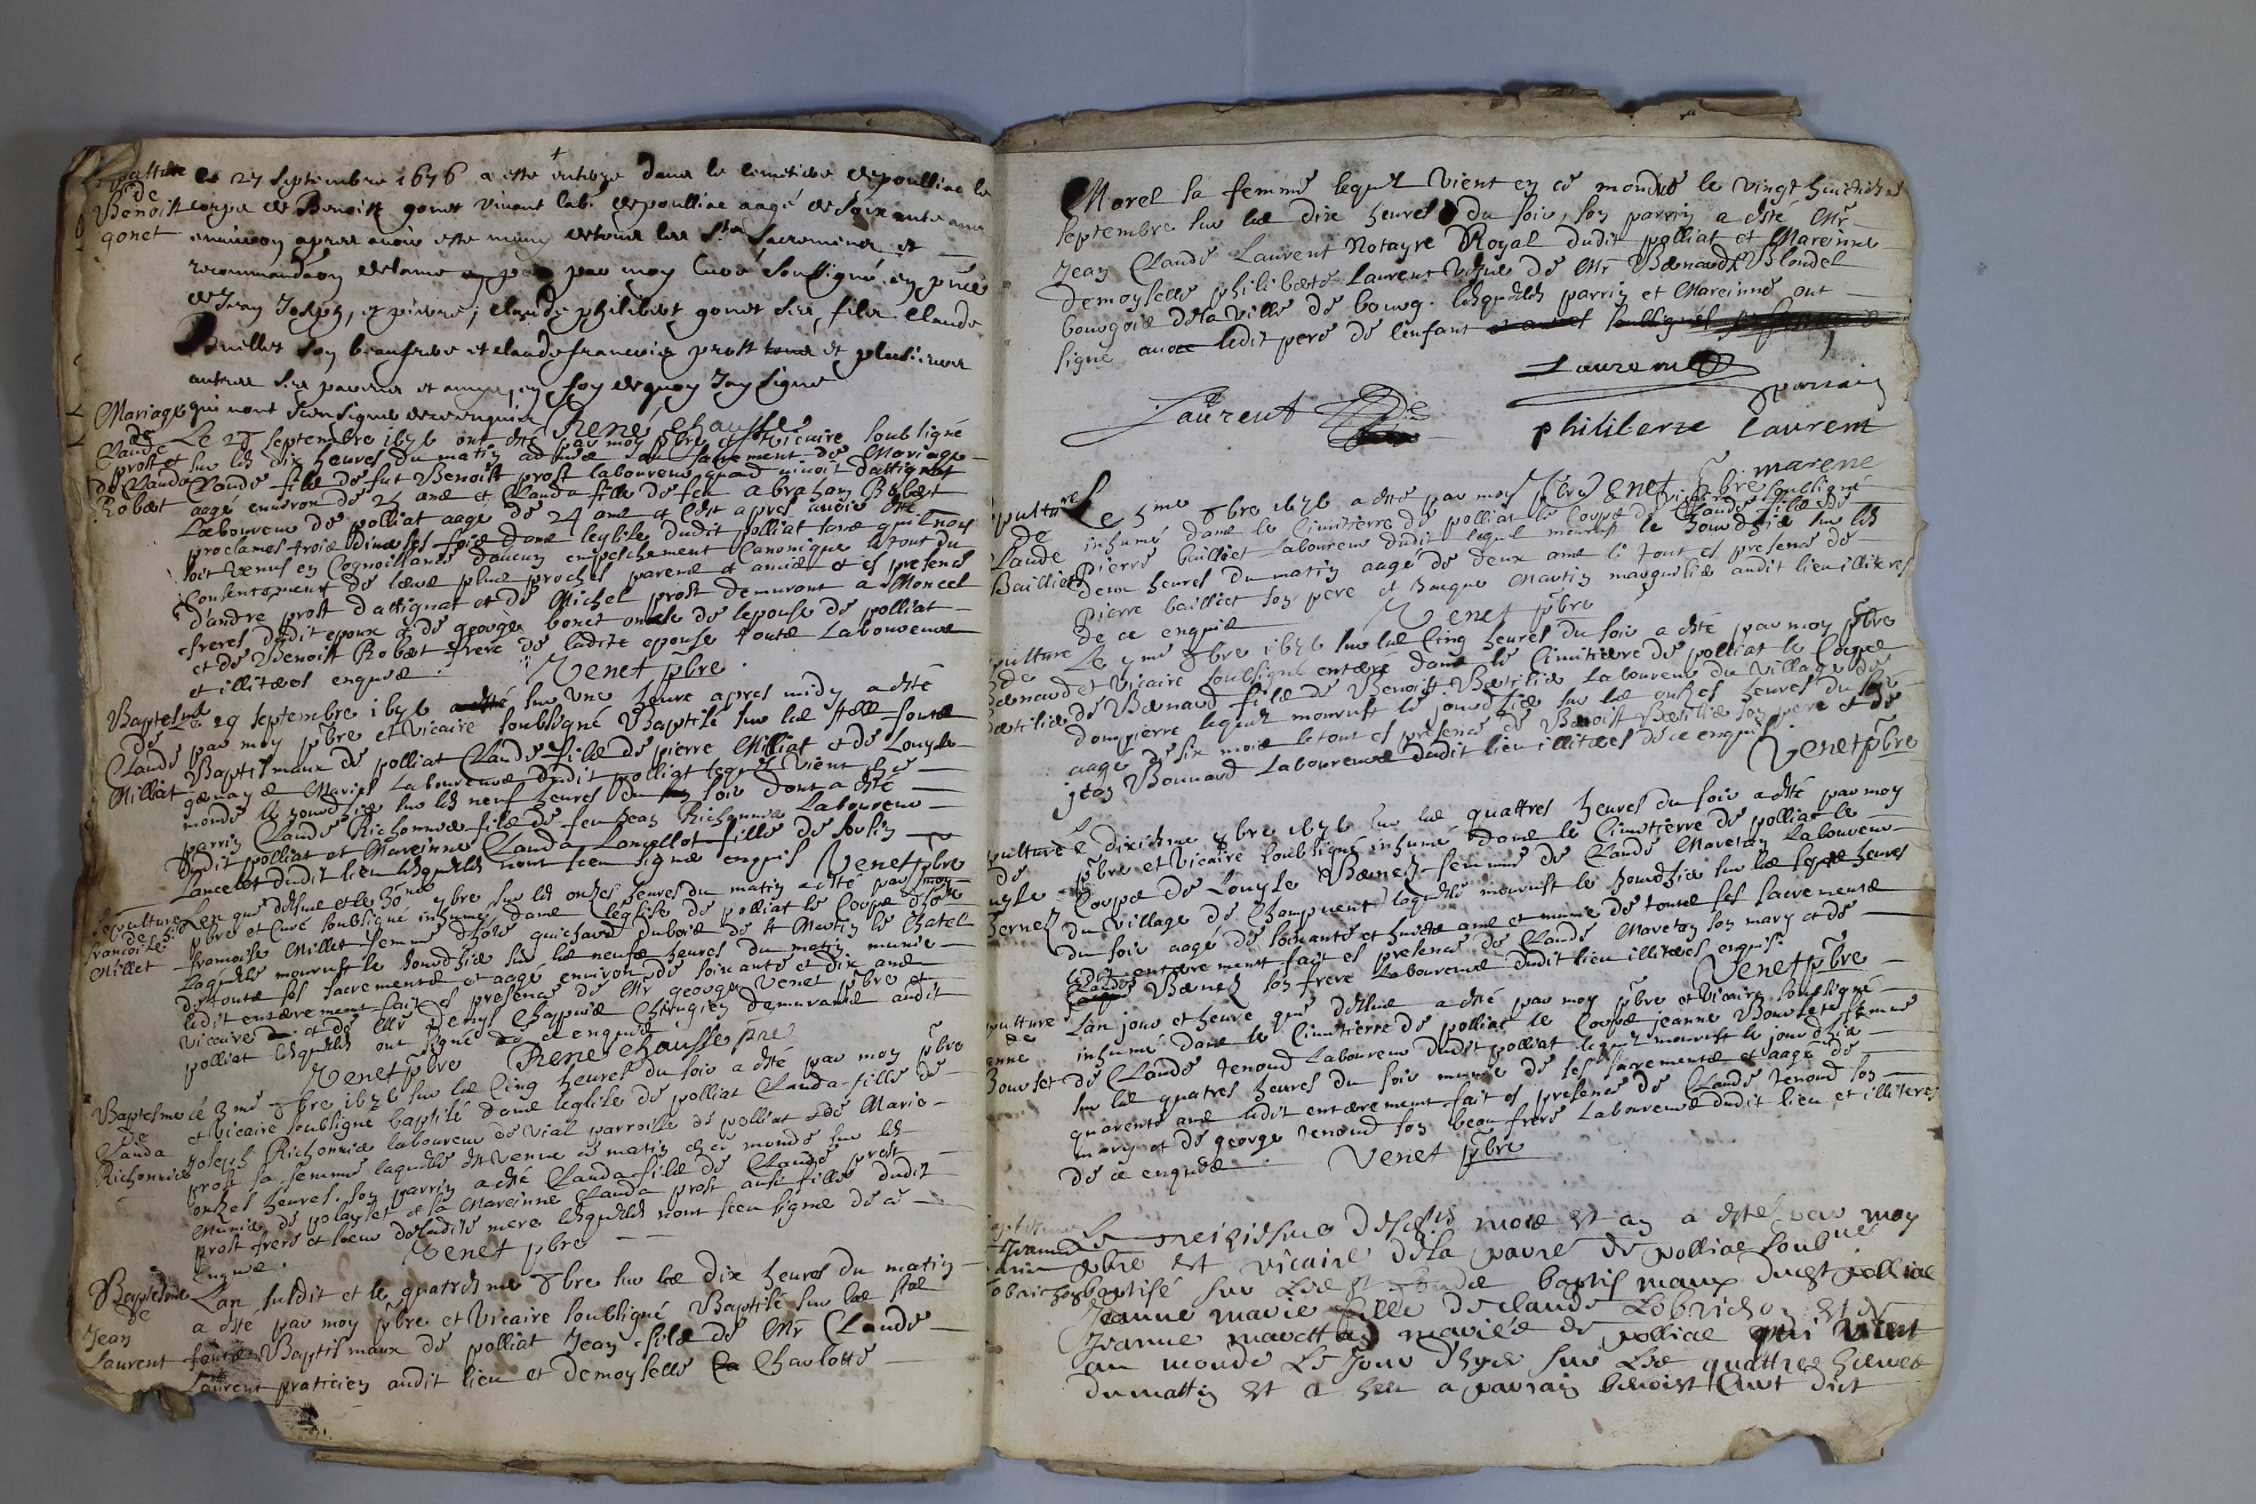 Sepulture
de
Benoist
gonet
le 27 septembre 1676 a este enterre dans le cimetiere de poulliac le
corps de Benoist gonet vivant lab. de poulliac aagé de soixante ans
environ apres avoir este muny de tous les Sts Sacremens et
recommandaon de lame par moy Curé soussigné en pnce
de Jean Joseph, et pierre, claude philibert gonet ses fils Claude
Buillet son beaufrere et claude francois prost et plusieurs
autres ses parens et amys, en foy de quoy Jay signe
qui nont sceu signer de ce enquis René chausse
Mariage
de
Claude
prost et
de Clauda
Robert
Le 28 septembre 1676 ont esté par moy pbre et Vicaire soubsigné
sur les dix heures du matin admis au sacrement de Mariage
Claude fils de fut Benoist prost laboureur quand vivoit dattignat
aagé environ de 25 ans et Clauda fille de feu abraham Robert
Laboureur de polliat aagé de 24 ans et cest apres avoir esté
proclamés trois dimanches fois dans leglise dudit polliat sans quil nous
soit venus en Cognoissance daucun empeschement Canonique le tout du
Consentement de leurs plus proches parens et amis et es presence
dandre prost dattignat et de Michel prost demeurant a Moncel
freres dudit epoux et de george bonet oncle de lepouse de polliat
et de Benoist Robert frere de ladite epouse tous Laboureurs
et illiteres enquis Venet pbre
Baptesme
de
Claude
Milliat
Le 29 septembre 1676 sur une heure apres midy a esté
par moy pbre et vicaire soubsigné Baptisé sur les stes fonts
Baptismaux de polliat Claude fils de pierre Milliat et de Louyse
mariés Laboureurs dudit polliat lequel vient en ce
monde le jourdhier sur les neuf heures du soir dont a esté
parrin Claude Richonnier fils de feu Jean Richonnier Laboureur
dudit polliat et Mareinne Clauda Lancellot fille de
Lancelot dudit lieu lesquels nont sceu signer enquis Venet pbre
Sepulture
de
francoise
Millet
Lan que dessus et le 30me 7bre sur les onzes heures du matin a esté par moy
pbre et Curé soubsigné inhumé dans leglise de polliat le Corps dhon
francoise Millet femme dhon guichard dubois de St Martin le Chatel
Laquelle mourust le jourdhier sur les neufs heures du matin munie
de touts ses sacrements et aagé environ de soixante et dix ans
ledit enterrement fait es presence de Mr george Venet pbre et
vicaire et de Mr denys Chappuis Chirugien demeurants audit
polliat lesquels ont signé de ce enquis
Venet pbre René chausse pre
Baptesme
de
Clauda
Richonnier
Le 3me 8bre 1676 sur les Cinq heures du soir a esté par moy pbre
et vicaire soubsigné baptisé dans leglise de polliat Clauda fille de
Joseph Richonnier laboureur de vial parroisse de polliat et de Marie
prost sa femme laquelle est venue ce matin en ce monde sur les
onzes heures. Son parrin a esté Claude fils de Claude prost
de polayset et sa Mareinne Clauda prost aussi fille dudit
prost frere et soeur de ladite mere lesquels nont sceu signer de ce
Enquis. Venet pbre
Baptesme
de
Jean
Laurent
Lan susdit et le quatriesme 8bre sur les dix heures du matin
a esté par moy pbre et vicaire soubsigné Baptisé sur les stes
fonts Baptismaux de polliat Jean fils de Mr Claude
Laurent praticien audit lieu et demoyselle Charlotte
Morel sa femme lequel vient en ce monde le vingt huictiesme
septembre sur les dix heures du soir, son parrin a esté Mr
Jean Claude Laurent Notayre Royal dudit polliat et Mareinne
demoyselle philiberte Laurent veufue de Mr Bernard Blondel
bourgois de la ville de bourg. lesquels parrin et Mareinne ont
signé avec ledit pere de lenfant
Laurent
parrain
Laurent
philiberte Laurent
marene
Venet pbre
Sepulture
de
Claude
Bailliet
Le 5me 8bre 1676 a esté par moy pbre et vicaire soubsigné
inhumé dans le Cimitierre de polliat le Corps de Claude fils de
Pierre bailliet Laboureur dudit lequel mourust le jourdhier sur les
deux heures du matin aagé de deux ans le tout es presence de
Pierre bailliet son pere et Jacques Martin marguillier audit lieu illiteres
de ce enquis Venet pbre
Sepulture
de
Bernard
Le 7me 8bre 1676 sur les Cinq heures du soir a esté par moy pbre
et Vicaire soubsigné enterré dans le Cimitierre de polliat le Corps
de Bernard fils de Benoist Laboureur du village de
dompierre lequel mourust le jourdhier sur les onzes heures du soir
aagé de six mois le tout es presence de Benoist son pere et de
jean Bonnard Laboureurs dudit lieu illiteres de ce enquis.
Venet pbre
Sepulture
de
Louyse
Bernez
Le dixiesme 8bre 1676 sur les quattres heures du soir a esté par moy
pbre et Vicaire soubsigné inhumé dans le Cimitierre de polliat le
Corps de Louyse Bernez femme de Claude Mareton Laboureur
du village de Champvent laquelle mourust le jourdhier sur les septs heures
du soir aagé de soixante et huict ans et munie de touts ses sacrements
ledit enterrement fait es presence de Claude Mareton son mary et de
Bernez son frere Laboureurs dudit lieu illiteres enquis.
Venet pbre
Sepulture
de
Jeanne
Bouvset
Lan jour et heure que dessus a esté par moy pbre et vicaire soubsigné
inhumé dans le Cimitierre de polliat le Corps jeanne Bouvset femme
de Claude renoud Laboureur dudit polliat lequel mourust le jourdhier
sur les quatres heures du soir munie de ses sacrements et aagé de
quarente ans ledit enterrement fait es presence de Claude renoud son
mary et de george renoud son beau frere Laboureurs dudit lieu et illiteres
de ce enquis Venet pbre
Baptesme
Jeanne
Marie
Lobrichon
Le treiziesme desdits mois et an a esté par moy
pbre et vicaire de la parr de polliat soubne
baptisé sur les st fonds baptismaux dudit polliat
Jeanne marie fille de claude Lobrichon et de
Jeanne mariés de polliat qui vient
au monde Le Jour dhyer sur Les quattres heures
du mattin et a heu a parrain benoist Curt dict